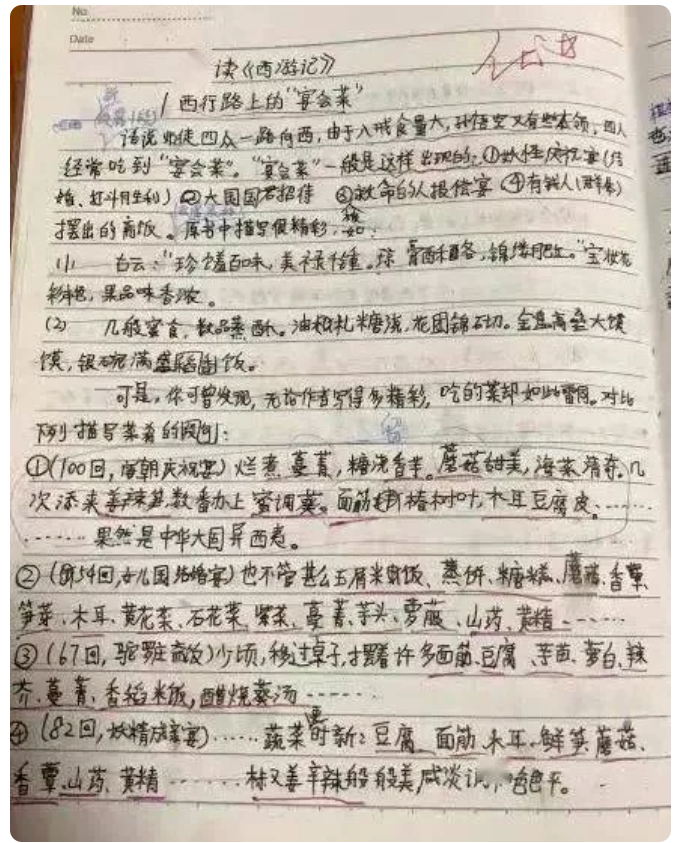 No.
Date
读《西游记》
1 西行路上的“宴会菜”
话说师徒四众一路向西,由于八戒食量大,孙悟空又有些本领,四人
经常吃到“宴会菜”。“宴会菜”一般是这样出现的:①妖怪庆祝宴(结
婚、打斗胜利)②大国国君招待 ③救命的人报偿宴 ④有钱人(群体)
摆出的斋饭。原书中描写很精彩,
(1) 古云:“珍馐百味,美禄千钟。琼膏酥酪,锦缕肥红。”宝妆花
彩艳,果品味香浓。
(2) 几般蜜食,数品蒸酥。油札糖浇,花团锦砌。金盘高垒大馍
馍,银碗满盛稻饭。
可是,你可曾发现,无论作者写得多精彩,吃的菜却如此雷同。对比
下列描写菜肴的
①(100回,唐朝庆祝宴)烂煮蔓菁,糖浇香芋。蘑菇甜美,海菜清奇。几
次添来姜辣笋,数番办上蜜调葵。面筋椿树叶,木耳豆腐皮。……
……果然是中华大国异西夷。
②(第54回,女儿国结婚宴)也不管甚么玉屑米饭、蒸饼、糖糕、蘑菇、香蕈、
笋芽、木耳、黄花菜、石花菜、紫菜、蔓菁、芋头、萝菔、山药、黄精……
③(67回,驼罗庄斋饭)少顷,移过桌子,摆着许多面筋、豆腐、芋苗、萝白、辣
芥、蔓菁、香稻米饭,醋烧葵汤……
④(82回,妖精宴)……蔬菜更时新:豆腐、面筋、木耳、鲜笋、蘑菇、
香蕈、山药、黄精……姜辛辣般般美,咸淡色色平。